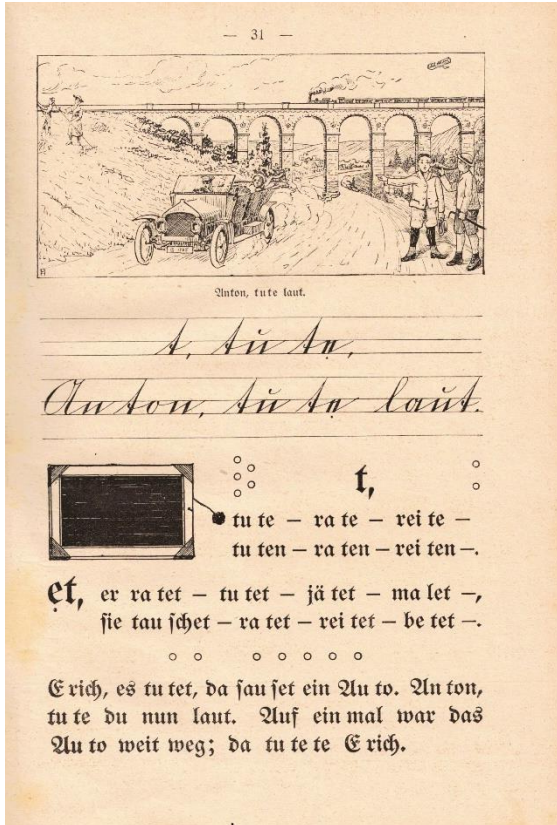 — 31 —
Anton, tute laut.
t, tu te,
An ton, tu te laut.
t,
tu te – ra te – rei te –
tu ten – ra ten – rei ten –.
et, er ra tet – tu tet – jä tet – ma let –,
sie tau schet – ra tet – rei tet – be tet –.
E rich, es tu tet, da sau set ein Au to. An ton,
tu te du nun laut. Auf ein mal war das
Au to weit weg; da tu te te E rich.